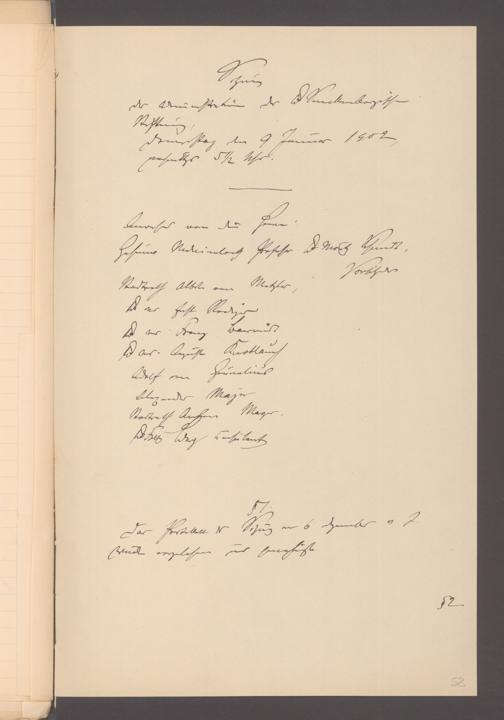 Sitzung
der Administration der Dr Senckenbergischen
Stiftung,
Donnerstag den 9 Januar 1902,
5½ Uhr.
Anwesend waren die Herren
Geheimer Medicinalrath Professor Dr Moritz Schmidt,
Vorsitzender
Stadtrath Albert von Metzler,
Dr med Ernst Roediger
Dr med Franz
Dr med. August Knoblauch
Adolf von Grunelius
Alexander Majer
Stadtrath Anton Meyer.
Dr Fritz Berg Consulent
§ 1.
Das Protokoll der Sitzung vom 6 Dezember
wurde vorgelesen und genehmigt
§ 2
58